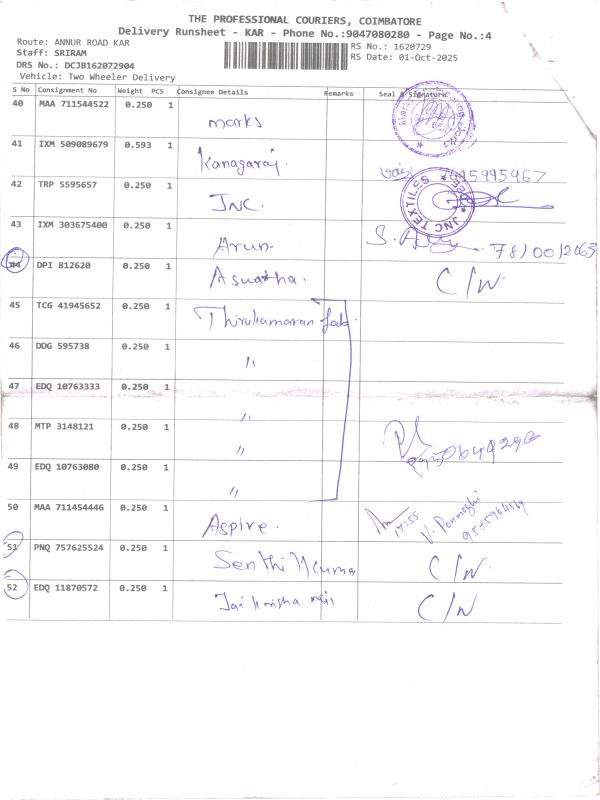 THE PROFESSIONAL COURIERS, COIMBATORE
Delivery Runsheet - KAR - Phone No.:9047080280 - Page No.:4
Route: ANNUR ROAD KAR
RS No.: 1620729
Staff: SRIRAM
RS Date: 01-Oct-2025
DRS No.: DCJB162072904
Vehicle: Two Wheeler Delivery
S No Consignment No Weight PCS Consignee Details Remarks Seal & Signature
40 MAA 711544522 0.250 1 marks
41 IXM 509089679 0.593 1 Kanagaraj.
42 TRP 5595657 0.250 1 JNC.
JNC TEXTILES
43 IXM 303675400 0.250 1 Arun.
44 DPI 812620 0.250 1 Aswatha. C/N.
45 TCG 41945652 0.250 1 Thirukamaran fab.
46 DDG 595738 0.250 1 "
47 EDQ 10763333 0.250 1 "
48 MTP 3148121 0.250 1 "
49 EDQ 10763080 0.250 1 "
50 MAA 711454446 0.250 1 Aspire. 17:55 V. Ponmozhi
51 PNQ 757625524 0.250 1 Senthilkuma C/N.
52 EDQ 11870572 0.250 1 Jai krisha C/N